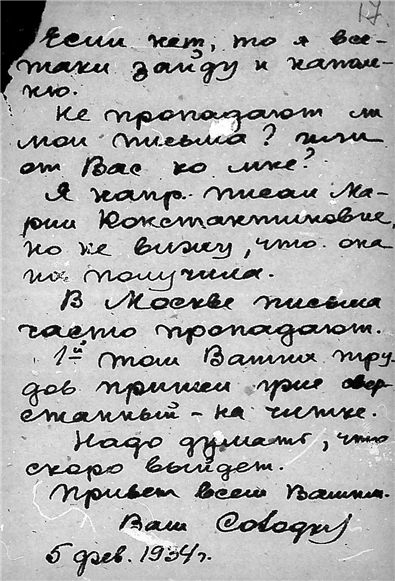 17.
Если нет, то я все-
таки зайду и напом-
ню.
Не пропадают ли
мои письма? или
от Вас ко мне?
Я напр. писал Ма-
рии Константиновне,
но не вижу, что она
их получила.
В Москве письма
часто пропадают.
1й том Ваших тру-
дов пришел уже свер-
станный – на читке.
Надо думать, что
скоро выйдет.
Привет всем Вашим.
Ваш
5 фев. 1934 г.